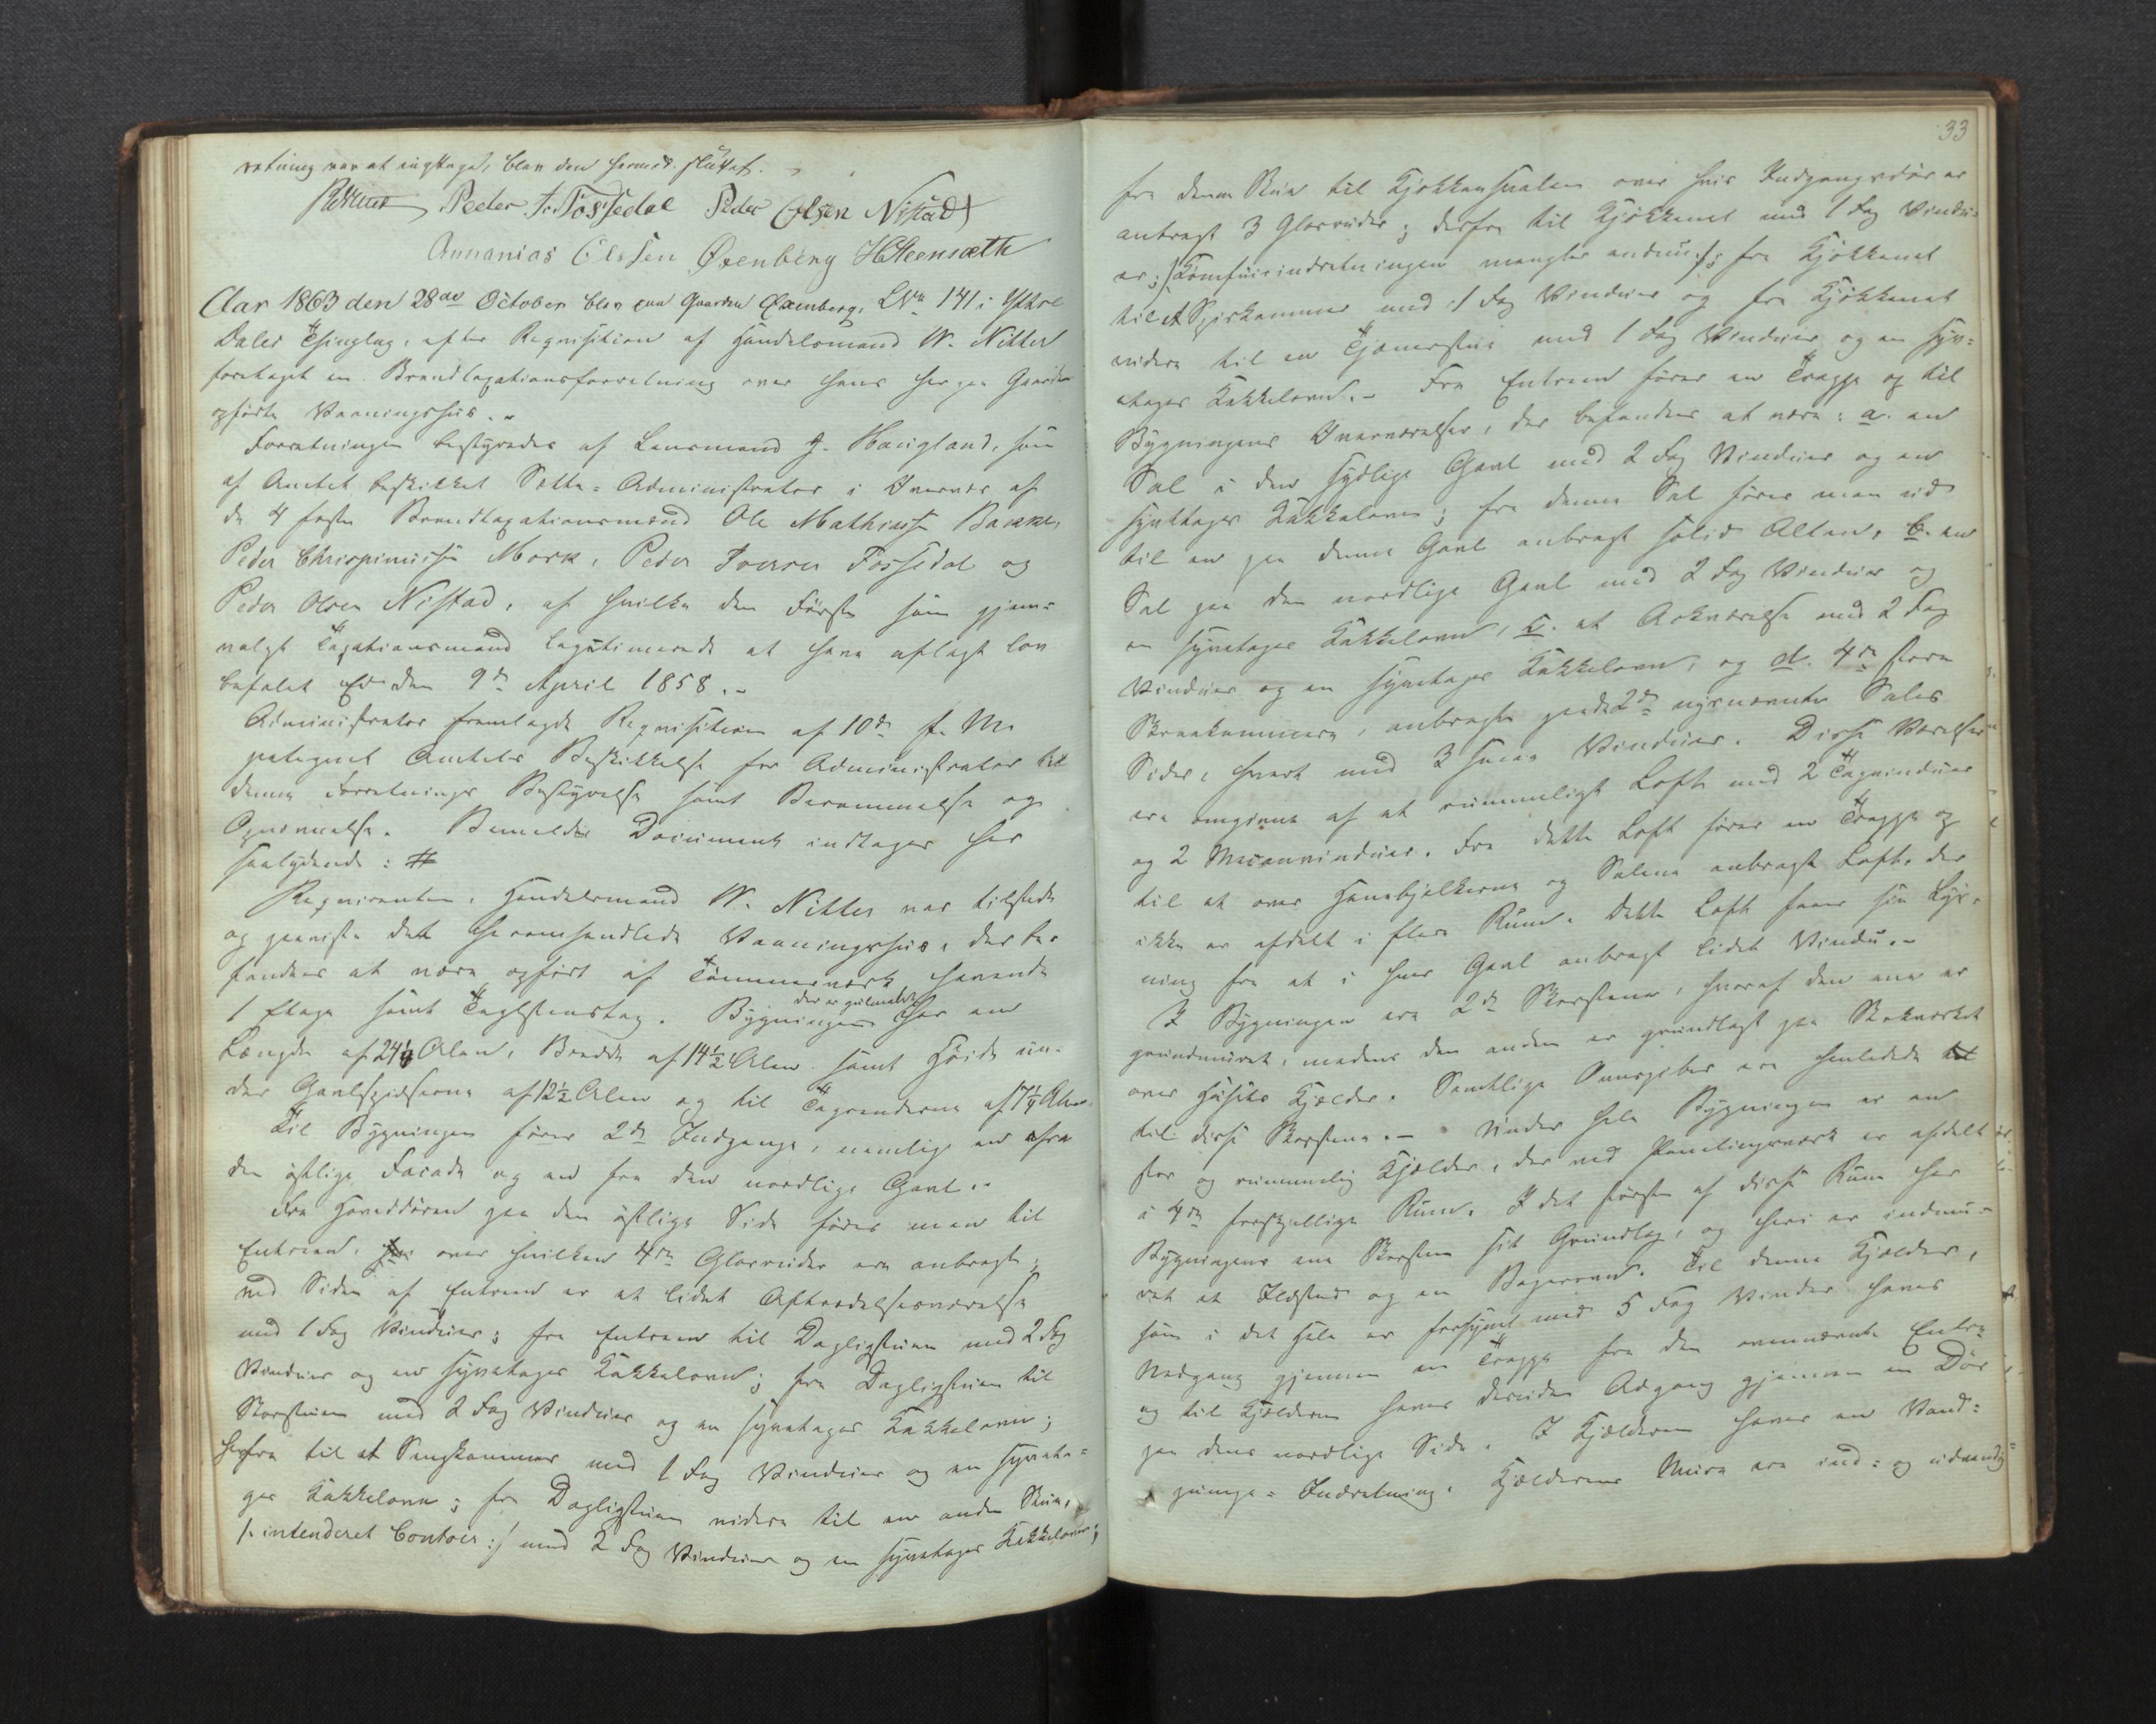 retning var at iagttage, blev den hermed sluttet.
Peder Iv. Fossedal Peder Olsen Nistad
Annanias Olssen Øxenberg H Steensæth
Aar 1863 den 28de October blev paa Gaarden Øxenberg, LNr 141 i Yttre
Dales Thinglag, efter Requisition af Handelsmand W. Nitter
foretaget en Brandtaxationsforretning over hans her paa Gaarden
opførte Vaaningshus. -
Forretningen bestyredes af Lensmand J. Haugland, som
af Amtet beskikket Sætte-Administrator i Overvær af
de 4 faste Brandtaxationsmænd Ole Mathiassen Bakke,
Peder Chrispinussen Mork, Peder Iversen Fossedal og
Peder Olsen Nistad, af hvilke den Første som gjen-
valgt Taxationsmand legitimerede at have aflagt lov
befalet Ed den 9de April 1858. -
Administrator fremlagde Requisition af 10de f. M.
paategnet Amtets Beskikkelse for Administrator til
denne Forretnings Bestyrelse samt Berammelse og
Opnævnelse. Bemeldte Document indtages her
saalydende: #
Requirenten, Handelsmand W. Nitter var tilstede
og paaviste det heromhandlede Vaaningshus, der be-
fandtes at være opført af Tømmerværk havende
1 Etage samt Taglstenstag. Bygningen der er gulmalet har en
Længde af 24 1/4 Alen, Bredde af 14 1/2 Alen samt Høide un-
der Gavlspidserne af 12 1/2 Alen og til Tagrenderne af 7 1/4 Alen.
Til Bygningen fører 2de Indgange, nemlig en fra
den østlige Facade og en fra den nordlige Gavl. -
Fra Hoveddøren paa den østlige Side føres man til
Entreen, over hvilken 4re Glasruder ere anbragt;
ved Siden af Entreen er et lidet Aftrædelsesværelse
med 1 Fag Vinduer; fra Entreen til Dagligstuen med 2 Fag
Vinduer og en Kakkelovn; fra Dagligstuen til
Storstuen med 2 Fag Vinduer og en Kakkelovn;
herfra til et Sengkammer med 1 Fag Vinduer og en
ges Kakkelovn; fra Dagligstuen videre til en anden Stue,
/: intenderet Contoir :/ med 2 Fag Vinduer og en Kakkelovn;
33
fra denne Stue til Kjøkkensvalen over hvis Indgangsdør er
anbragt 3 Glasruder; derfra til Kjøkkenet med 1 Fag Vindu-
er; /: Komfurindretningen mangler endnu :/; fra Kjøkkenet
til et Spiskammer med 1 Fag Vinduer og fra Kjøkkenet
videre til en Tjenerstue med 1 Fag Vinduer og en
etages Kakkelovn. - Fra Entreen fører en Trappe op til
Bygningens Overværelser, der befandtes at være: a. en
Sal i den sydlige Gavl med 2 Fag Vinduer og en
Kakkelovn; fra denne Sal fører man ud
til en paa denne Gavl anbragt solid Altan, b. en
Sal paa den nordlige Gavl med 2 Fag Vinduer og
en Kakkelovn, c. et Arkværelse med 2 Fag
Vinduer og en Kakkelovn, og d. 4re store
Skraakammere, anbragte paa de 2de nysnævnte Sales
Sider, hvert med 3 smaa Vinduer. Disse Værelser
ere omgivne af et rummeligt Loft med 2 Tagvinduer
og 2 Vinduer. Fra dette Loft fører en Trappe op
til et over Hanebjelkerne og Salene anbragt Loft, der
ikke er afdelt i flere Rum. Dette Loft faaer sin Lys-
ning fra et i hver Gavl anbragt lidet Vindu. -
I Bygningen ere 2de Skorstene, hvoraf den ene er
grundmuret, medens den anden er grundlagt paa Stokværket
over Husets Kjælder. Samtlige Ovnspiber ere henledede
til disse Skorstene. - Under hele Bygningen er en
stor og rummelig Kjælder, der ved Panelingsværk er afdelt
i 4re forskjellige Rum. I det første af disse Rum har
Bygningens ene Skorsten sit Grundlag, og heri er indmu-
ret et Ildsted og en Bagerovn. Til denne Kjælder,
som i det Hele er forsynet med 5 Fag Vinduer haves
Nedgang gjennem en Trappe fra den ovennævnte Entre
og til Kjælderen haves desuden Adgang gjennem en Dør
paa dens nordlige Side. I Kjælderen haves en Vand-
pumpe-Indretning. Kjælderens Mure ere ind- og udvendig